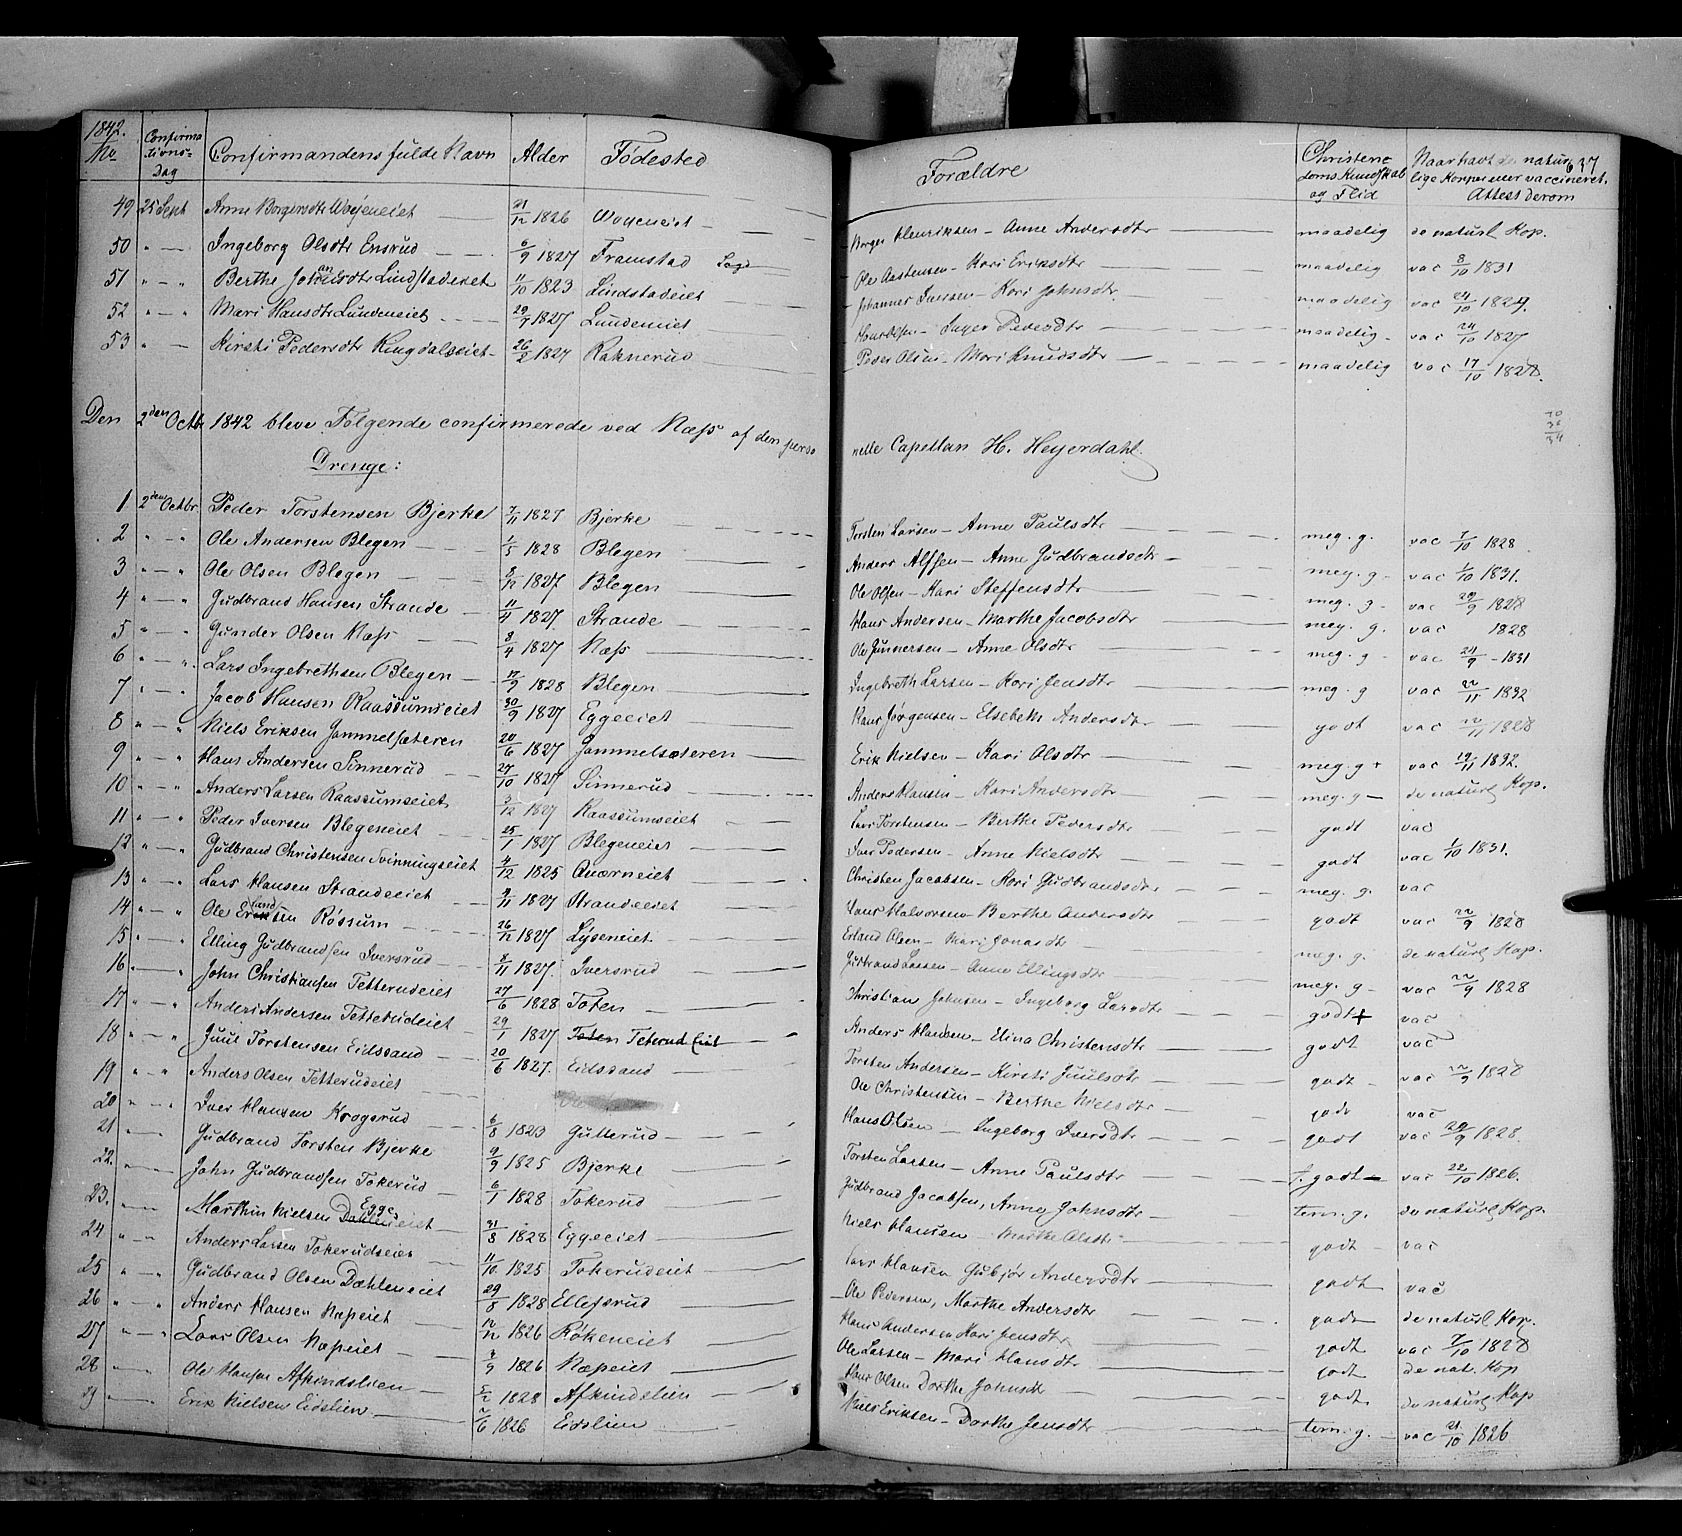 1842. No Confirmations-Dag Confirmandens fulde Navn Alder Fødested Forældre Christendoms Kundskab og Flid Naar havt de naturlige Kopper eller vaccineret. Attest derom 637
49 25 Sept Anne Borgersdtr Woyeneiet 21/12 1826 Woyeneiet Borger Henriksen - Anne Andersdtr maadelig de naturl Kop.
50 " - Ingeborg Olsdtr Ensrud 6/9 1827 Framstad Sogn Ole Aastensen - Kari Eriksdtr maadelig vac 8/10 1831
51 " - " Berthe Johannesdtr Lindstadeiet 11/10 1823 Lindstadeiet Johannes Iversen - Kari Johnsdtr maadelig vac 24/10 1824.
52 " - " Mari Hansdtr Lundeneiet 29/7 1827 Lundeneiet Hans Olsen - Inger Pedersdtr maadelig - vac 24/10 1827
53 " - Kirsti Pedersdtr Ringdalseiet 26/2 1827 Raknerud Peder Olsen - Mari Knudsdtr maadelig vac 17/10 1828.
Den 2den Octbr 1842 bleve Følgende confirmerede ved Næss af den personelle Capellan H. Heyerdahl.
Drenge:
1 2den Octbr. Peder Torstensen Bjerke 7/11 1827 Bjerke Torsten Larsen - Anne Paulsdtr meg. g. vac 7/10 1828
2 " - " Ole Andersen Blegen 1/5 1828 Blegen Anders Alfsen - Anne Gudbrandsdtr meg. g. vac 1/10 1831.
3 " - " Ole Olsen Blegen 8/12 1827 Blegen Ole Olsen - Kari Steffensdtr meg. g - vac 29/9 1828
4 " - " Gudbrand Hansen Strande 11/4 1827 Strande Hans Andersen - Marthe Jacobsdtr meg. g. vac 1828
5 " - " Gunder Olsen Næss 8/4 1827 Næss Ole Gunnersen - Anne Olsdtr meg. g - vac 24/9 - 1831
6 " - ". Lars Ingebrethsen Blegen 17/9 1828 Blegen Ingebreth Larsen - Kari Jensdtr meg. g vac 22/11 1832
7 " - " Jacob Hansen Raassumseiet 30/9 1827 Eggeeiet Hans Jørgensen - Elsebeth Andersdtr godt vac 12/11 1828
8 " - " Niels Eriksen Gammelsæteren 20/6 1827 Gammelsæteren Erik Nielsen - Kari Olsdtr meg. g + vac 19/11 1832.
9 " - " Hans Andersen Sinnerud 27/10 1827 Sinnerud Anders Hansen - Kari Andersdtr meg. g - de naturl Kop.
10 " - " Anders Larsen Raassumseiet 3/12 1827 Raassumseiet Lars Torstensen - Berthe Pedersdtr godt vac
11 " - " Peder Iversen Blegeneiet 25/1 1827 Blegeneiet Iver Pedersen - Anne Nielsdtr godt vac 1/10 1831.
12 " - " Gudbrand Christensen Svinningseiet 4/12 1825 Quærneiet Christen Jacobsen - Kari Gudbrandsdtr meg. g. vac
13 " - " Lars Hansen Strandeeiet 9/11 1827 Strandeeiet Hans Halvorsen - Berthe Andersdtr godt vac 22/9 1828
14 " - " Ole Erlandsen Røssum 26/12 1827 Lyseneiet Erland Olsen - Mari Jonasdtr meg. g. de naturl Kop.
15 " - " Elling Gudbrandsen Iversrud 8/11 1827. Iversrud Gudbrand Larsen - Anne Ellingsdtr meg. g - vac 22/9 1828
16 " - " John Christiansen Tetterudeiet 27/6 1828 Toten Christian Johnsen - Ingeborg Larsdtr godt + vac
17 " - " Anders Andersen Tetterudeiet 29/1 1827 Toten Teterud Eiet Anders Hansen - Elina Christensdtr godt vac
18 " - " Juul Torstensen Eidssand 20/6 1827. Eidssand Torsten Andersen - Kirsti Juulsdtr godt - vac 22/9 1828
19 " - " Anders Olsen Tetterudeiet Ole Christensen - Berthe Nielsdtr godt vac
20 " - " Iver Hansen Krogsrud 6/8 1823 Gulterud Hans Olsen - Ingeborg Iversdtr godt vac 29/9 1828.
21 " - " Gudbrand Torsten Bjerke 9/9 1825 Bjerke Torsten Larsen - Anne Paulsdtr t. godt - vac 22/10 1826.
22. " - " John Gudbrandsen Tokerud 6/1 1828 Tokerud Gudbrand Jacobsen, Anne Johnsdtr tem. g. de naturl Kop.
23. " - " Marthin Nielsen Dæhleneiet Egge 31/8 1828 Eggeeiet Niels Hansen Marthe Olsdtr godt - vac
24 " - " Anders Larsen Tokerudseiet 11/10 1825 Tokerudeiet Lars Hansen Gubjør Andersdtr godt vac
25 " - " Gudbrand Olsen Dæhleneiet 29/8 1828 Ellefsrud Ole Pedersen, Marthe Andersdtr godt de naturl Kop.
26 " - " Anders Hansen Næseiet 12/12 1826 Røkeneiet Hans Andersen Kari Jensdtr godt vac 7/10 1828
27 " - " Lars Olsen Næseiet 3/9 1826 Næseiet Ole Larsen - Mari Hansdtr godt de nat. Kop
28 " Ole Hansen Askindslien 5/2 1828 Askindslien Hans Olsen Dorthe Johnsdtr godt de naturl Kop
29 " Erik Nielsen Eidslien 2/6 1826 Eidslien Niels Eriksen - Dorthe Jensdtr tem. g. - vac 21/10 1826